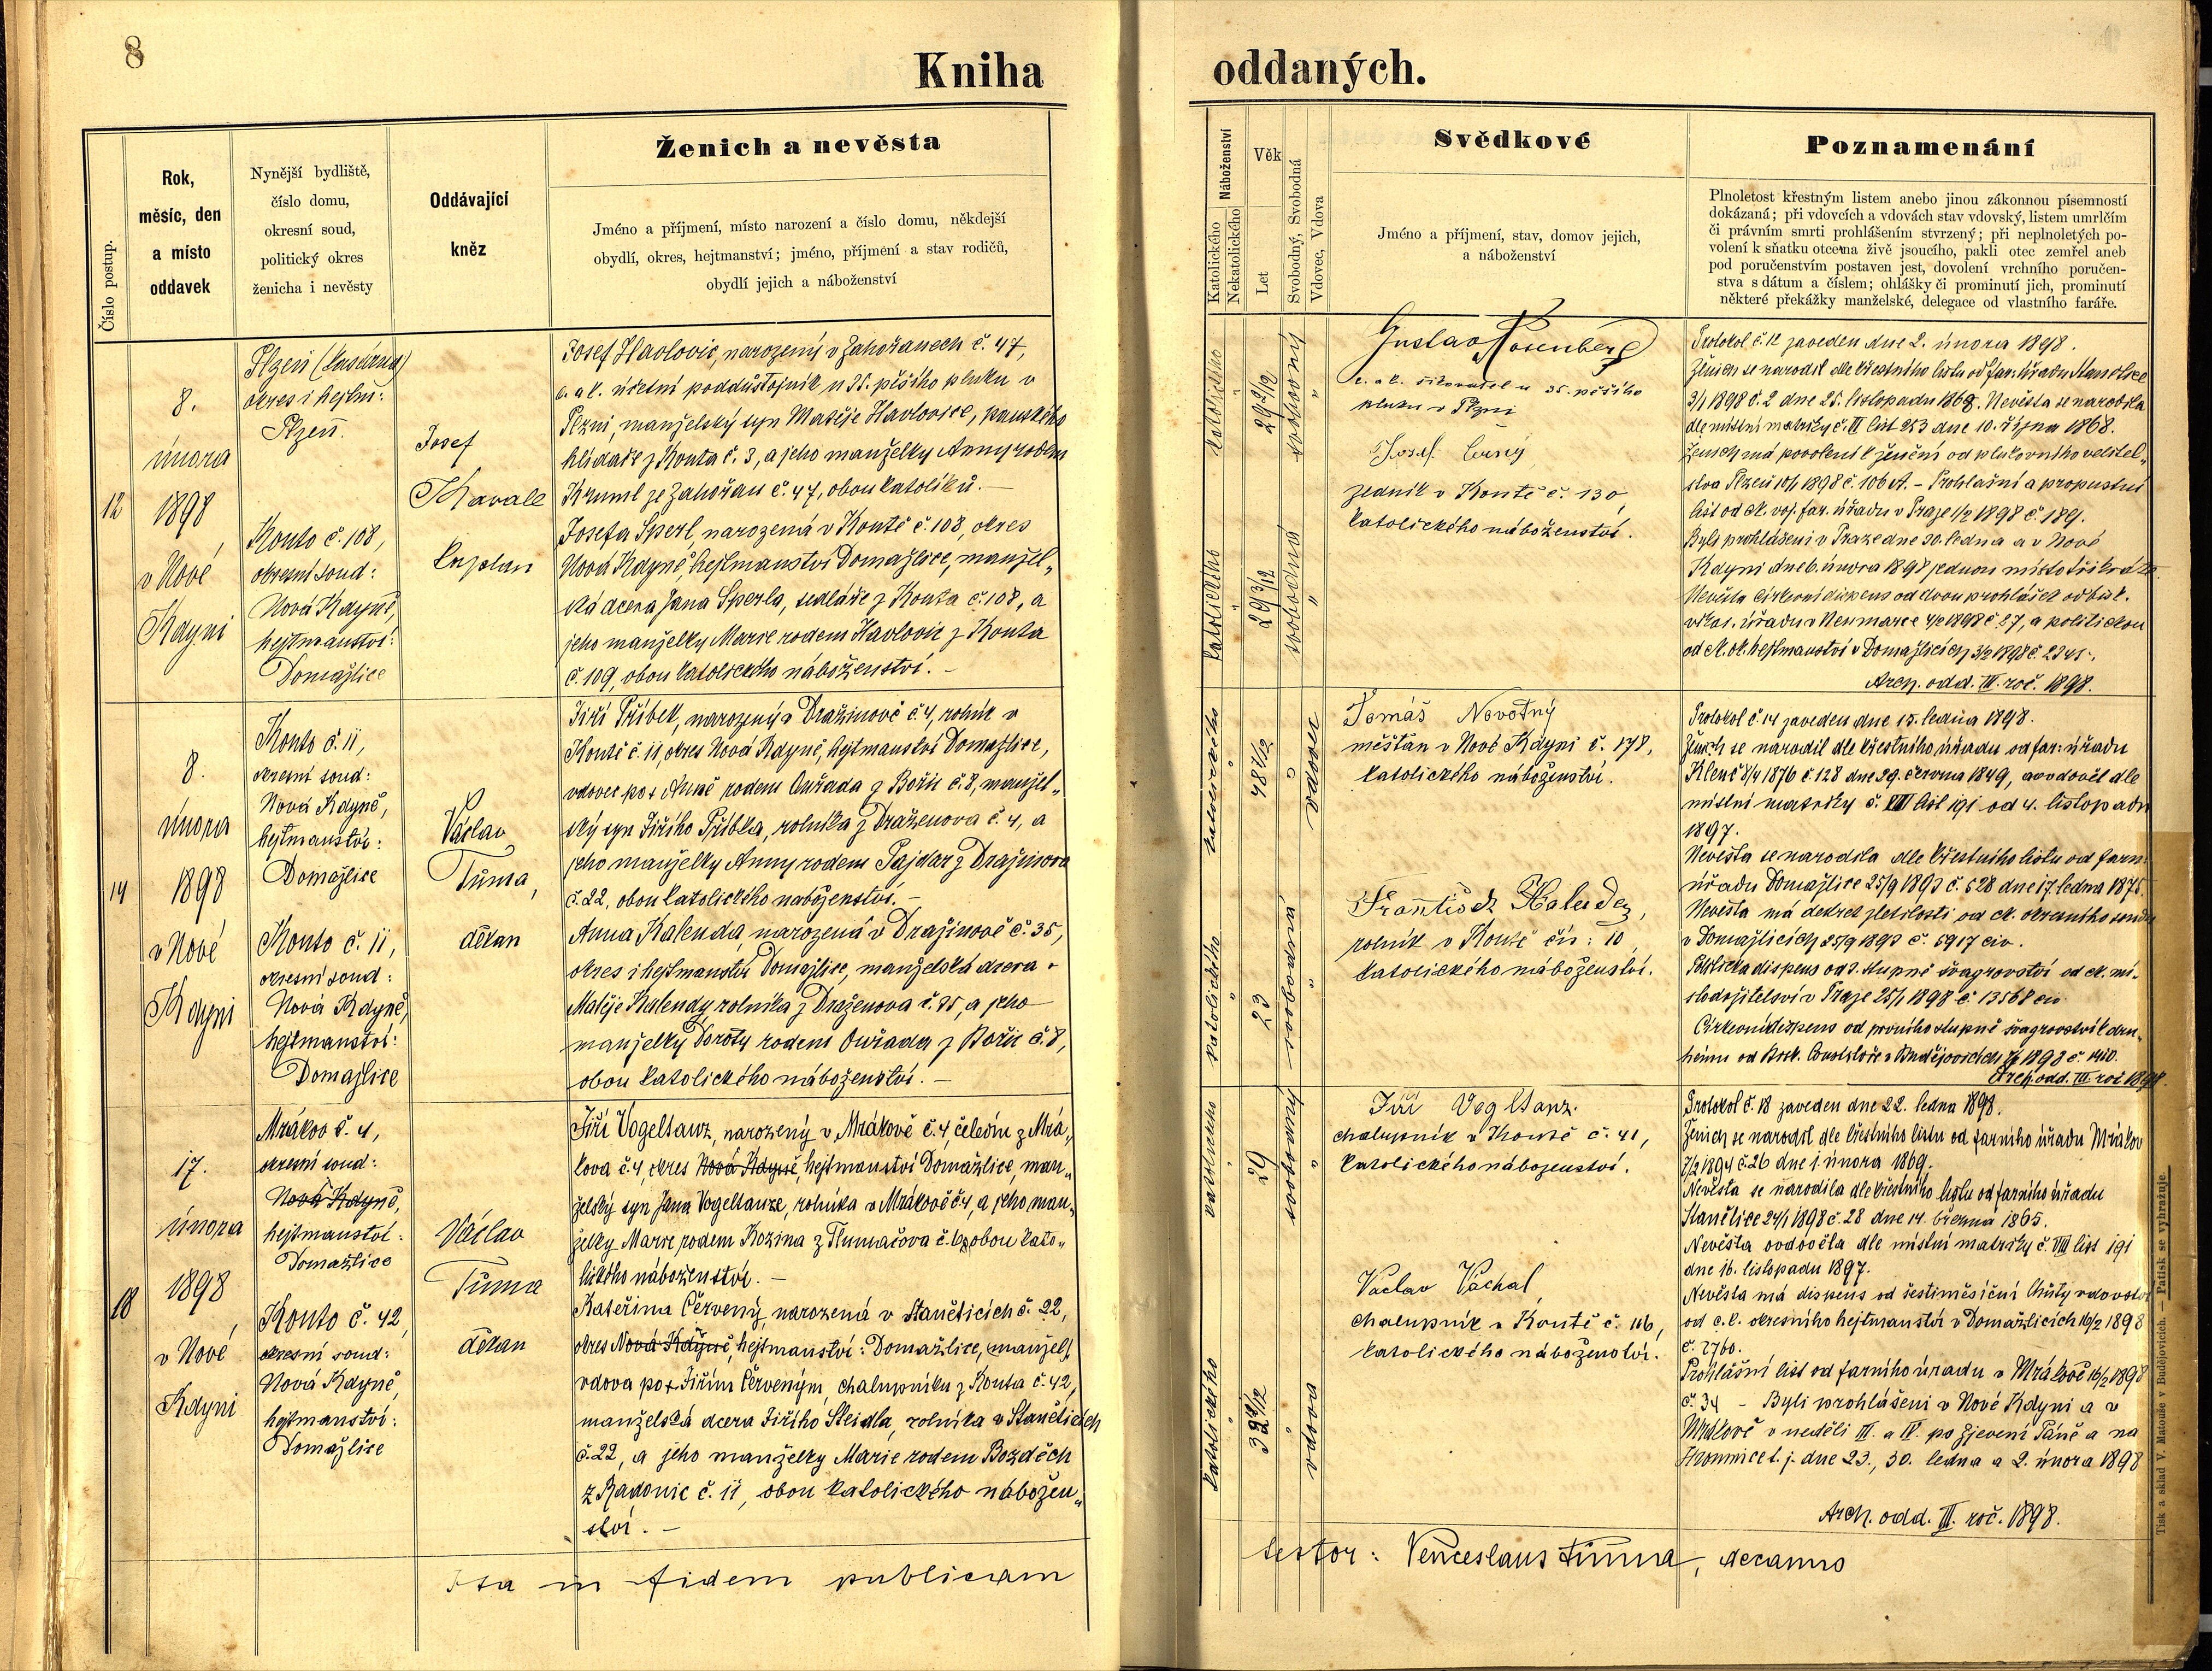 8
Kniha
oddaných.
Číslo postup.
Rok,
měsíc, den
a místo
oddavek
Nynější bydliště,
číslo domu,
okresní soud,
politický okres
ženicha i nevěsty
Oddávající
kněz
Ženich a nevěsta
Jméno a příjmení, místo narození a číslo domu, někdejší
obydlí, okres, hejtmanství; jméno, příjmení a stav rodičů,
obydlí jejich a náboženství
Náboženství
Katolického
Nekatolického
Věk
Let
Svobodný, Svobodná
Vdovec, Vdova
Svědkové
Jméno a příjmení, stav, domov jejich,
a náboženství
Poznamenání
Plnoletost křestným listem anebo jinou zákonnou písemností
dokázaná; při vdovcích a vdovách stav vdovský, listem umrlčím
či právním smrti prohlášením stvrzený; při neplnoletých po-
volení k sňatku otce na živě jsoucího, pakli otec zemřel aneb
pod poručenstvím postaven jest, dovolení vrchního poručen-
stva s dátum a číslem; ohlášky či prominutí jich, prominutí
některé překážky manželské, delegace od vlastního faráře.
12
8.
února
1898
v Nové
Kdyni
Plzeň (kasárna)
okres i hejtm:
Plzeň.
Konto č. 108,
okresní soud:
Nová Kdyně,
hejtmanství:
Domažlice
Josef
Kavale
kaplan
Josef Havlovic, narozený v Zahořanech č. 47,
c. a k. účetní poddůstojník u 35. pěšího pluku v
Plzni, manželský syn Matěje Havlovice, panského
hlídače z Kouta č. 3, a jeho manželky Anny rodem
Kruml ze Zahořan č. 47, obou katolíků. —
Josefa Sperl, narozená v Koutě č. 108, okres
Nová Kdyně, hejtmanství Domažlice, manžel„
ská dcera Jana Sperla, sedláře z Kouta č. 108, a
jeho manželky Marie rodem Havlovic z Kouta
č. 109, obou katolického náboženství. —
katolického
29 2/12
svobodný
katolického
29 3/12
svobodná
Gustav Rosenberg
c. a k. šikovatel u 35. pěšího
pluku v Plzni
Josef Černý
zedník v Koutě č. 130,
katolického náboženství.
Protokol č. 12 zaveden dne 2. února 1898.
Ženich se narodil dle křestního listu od far. úřadu Stanětice
3/1 1898 č. 2 dne 25. listopadu 1868. Nevěsta se narodila
dle místní matriky č. II list 253 dne 10. října 1868.
Ženich má povolení k ženění od plukovního velitel„
stva Plzeň 10/1 1898 č. 106 A. – Prohlašní a propustní
list od ck. voj. far. úřadu v Praze 1/2 1898 č. 189.
Byli prohlášeni v Praze dne 30. ledna a v Nové
Kdyni dne 6. února 1898 jednou místo třikráte.
Nevěsta církevní dispens od dvou prohlášek od bisk.
vikar. úřadu v Neumarce 4/2 1898 č. 27, a politickou
od ck. ok. hejtmanství v Domažlicích 3/2 1898 č. 2345.
Arch. odd. III. roč. 1898.
14
8.
února
1898
v Nové
Kdyni
Konto č. 11,
okresní soud:
Nová Kdyně,
hejtmanství:
Domažlice
Konto č. 11,
okresní soud:
Nová Kdyně,
hejtmanství:
Domažlice
Václav
Tůma,
děkan
Jiří Příbek, narozený v Dražinově č. 4, rolník v
Koutě č. 11, okres Nová Kdyně, hejtmanství Domažlice,
vdovec po † Anně rodem Ouřada z Bořic č. 8, manžel„
ský syn Jiřího Příbka, rolníka z Draženova č. 4, a
jeho manželky Anny rodem Pajdar z Dražinova
č. 22, obou katolického náboženství. —
Anna Kalenda, narozená v Dražinově č. 35,
okres i hejtmanství Domažlice, manželská dcera
Matěje Kalendy, rolníka z Draženova č. 35, a jeho
manželky Doroty rodem Ouřada z Bořic č. 8,
obou katolického náboženství. —
katolického
48 7/12
vdovec
katolického
23
svobodná
Tomáš Novotný
měšťan v Nové Kdyni č. 178,
katolického náboženství.
František Kalenda,
rolník v Koutě čís: 10,
katolického náboženství.
Protokol č. 14 zaveden dne 15. ledna 1898.
Ženich se narodil dle křestního úřadu od far. úřadu
Klenč 8/4 1876 č. 128 dne 29. června 1849, a ovdověl dle
místní matriky č. VIII list 191 od 4. listopadu
1897.
Nevěsta se narodila dle křestního listu od farn.
úřadu Domažlice 25/9 1893 č. 528 dne 17. ledna 1875.
Nevěsta má dekret zletilosti od ck. okresního soudu
v Domažlicích 25/9 1893 č. 5917 civ.
Politická dispens od 2. stupně švagrovství od ck. mí-
stodržitelsví v Praze 25/1 1898 č. 13568 civ
Církevní dispens od prvního stupně švagrovství k dru„
hému od bisk. Konsistoře v Budějovicích 1898 č. 1410.
Arch. odd. III. roč 1898.
18
17.
února
1898
v Nové
Kdyni
Mrákov č. 4,
okresní soud:
Nová Kdyně,
hejtmanství:
Domažlice
Konto č. 42,
okresní soud:
Nová Kdyně,
hejtmanství:
Domažlice
Václav
Tůma
děkan
Jiří Vogeltanz, narozený v Mrákově č. 4, čeledín z Mrá„
kova č. 4, okres Nová Kdyně, hejtmanství Domažlice, man„
želský syn Jana Vogeltanze, rolníka v Mrákově č. 4, a jeho man„
želky Marie rodem Kozina z Tlumačova č. obou kato„
lického náboženství. —
Kateřina Červený, narozená v Staněticích č. 22,
okres Nová Kdyně, hejtmanství: Domažlice, manžel.
vdova po † Jiřím Červeným, chalupníku z Kouta č. 42,
manželská dcera Jiřího Steidla, rolníka v Staněticích
č. 22, a jeho manželky Marie rodem Bozděch
z Radonic č. 11, obou katolického nábožen„
ství. —
katolického
29
svobodný
katolického
32
vdova
Jiří Vogltanz.
chalupník v Koutě č. 41,
katolického náboženství.
Václav Váchal,
chalupník v Koutě č. 116,
katolického náboženství.
Protokol č. 18 zaveden dne 22. ledna 1898.
Ženich se narodil dle křestního listu od farního úřadu Mrákov
7/2 1894 č. 26 dne 1. února 1869.
Nevěsta se narodila dle křestního listu od farního úřadu
Stanětice 24/1 1898 č. 28 dne 14. března 1865.
Nevěsta ovdověla dle místní matriky č. VIII list 191
dne 16. listopadu 1897.
Nevěsta má dispens od šestiměsíční lhůty vdovství
od c. k. okresního hejtmanství v Domažlicích 16/2 1898
č. 2760.
Prohlášní list od farního úřadu v Mrákově 16/2 1898
č. 34 – Byli prohlášeni v Nové Kdyni a v
Mrákově v neděli III. a IV. po Zjevení Páně a na
Hromnice t. j. dne 23., 30. ledna a 2. února 1898
Arch. odd. III. roč. 1898.
Ita in fidem publicam
testor: Venceslaus Tůma, decanus
Tisk a sklad V. Matouše v Budějovicích. — Patisk se vyhražuje.